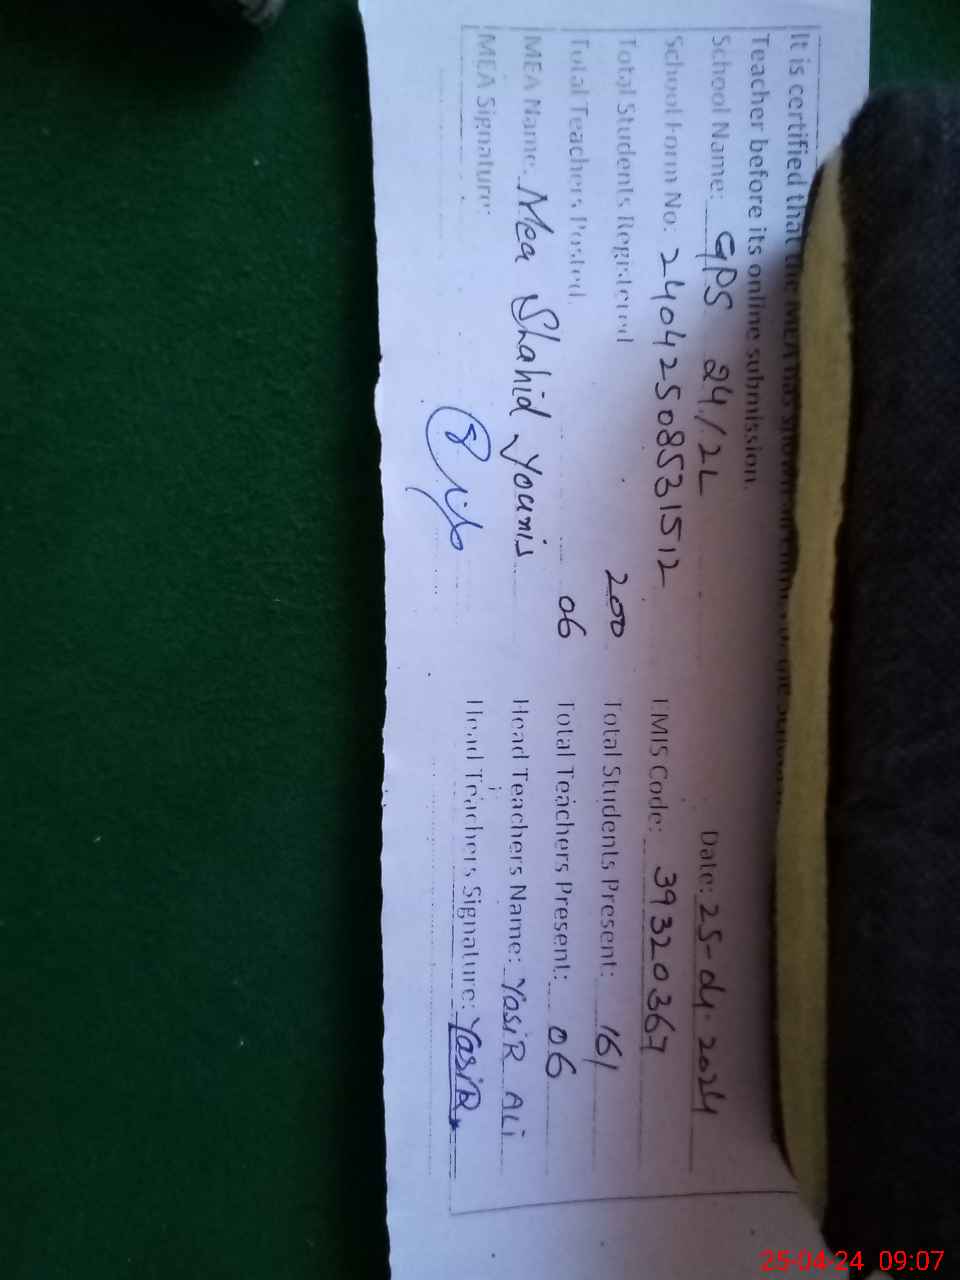 It is certified that the MEA has shown
Teacher before its online submission.
School Name: GPS 24/2L Date: 25-04-2024
School Form No: 24042508531512 EMIS Code: 39320367
Total Students Registered 200 Total Students Present: 161
Total Teachers Posted 06 Total Teachers Present: 06
MEA Name: Mea Shahid Younis Head Teachers Name: YasiR ALi
MEA Signature: Head Teachers Signature: YasiR
25-04-24 09:07